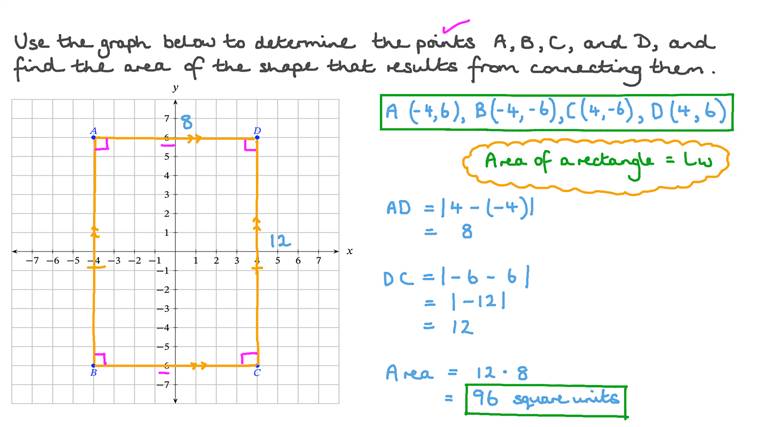 Use the graph below to determine the points A, B, C, and D, and
find the area of the shape that results from connecting them.
A (-4,6), B(-4,-6), C(4,-6), D(4,6)
Area of a rectangle = Lw
AD = |4 - (-4)|
= 8
DC = |-6 - 6|
= |-12|
= 12
Area = 12 · 8
= 96 square units
y
7
A 8 D
6
5
4
3
2
1
12
−7 −6 −5 −4 −3 −2 −1 1 2 3 4 5 6 7 x
−1
−2
−3
−4
−5
−6
B C
−7